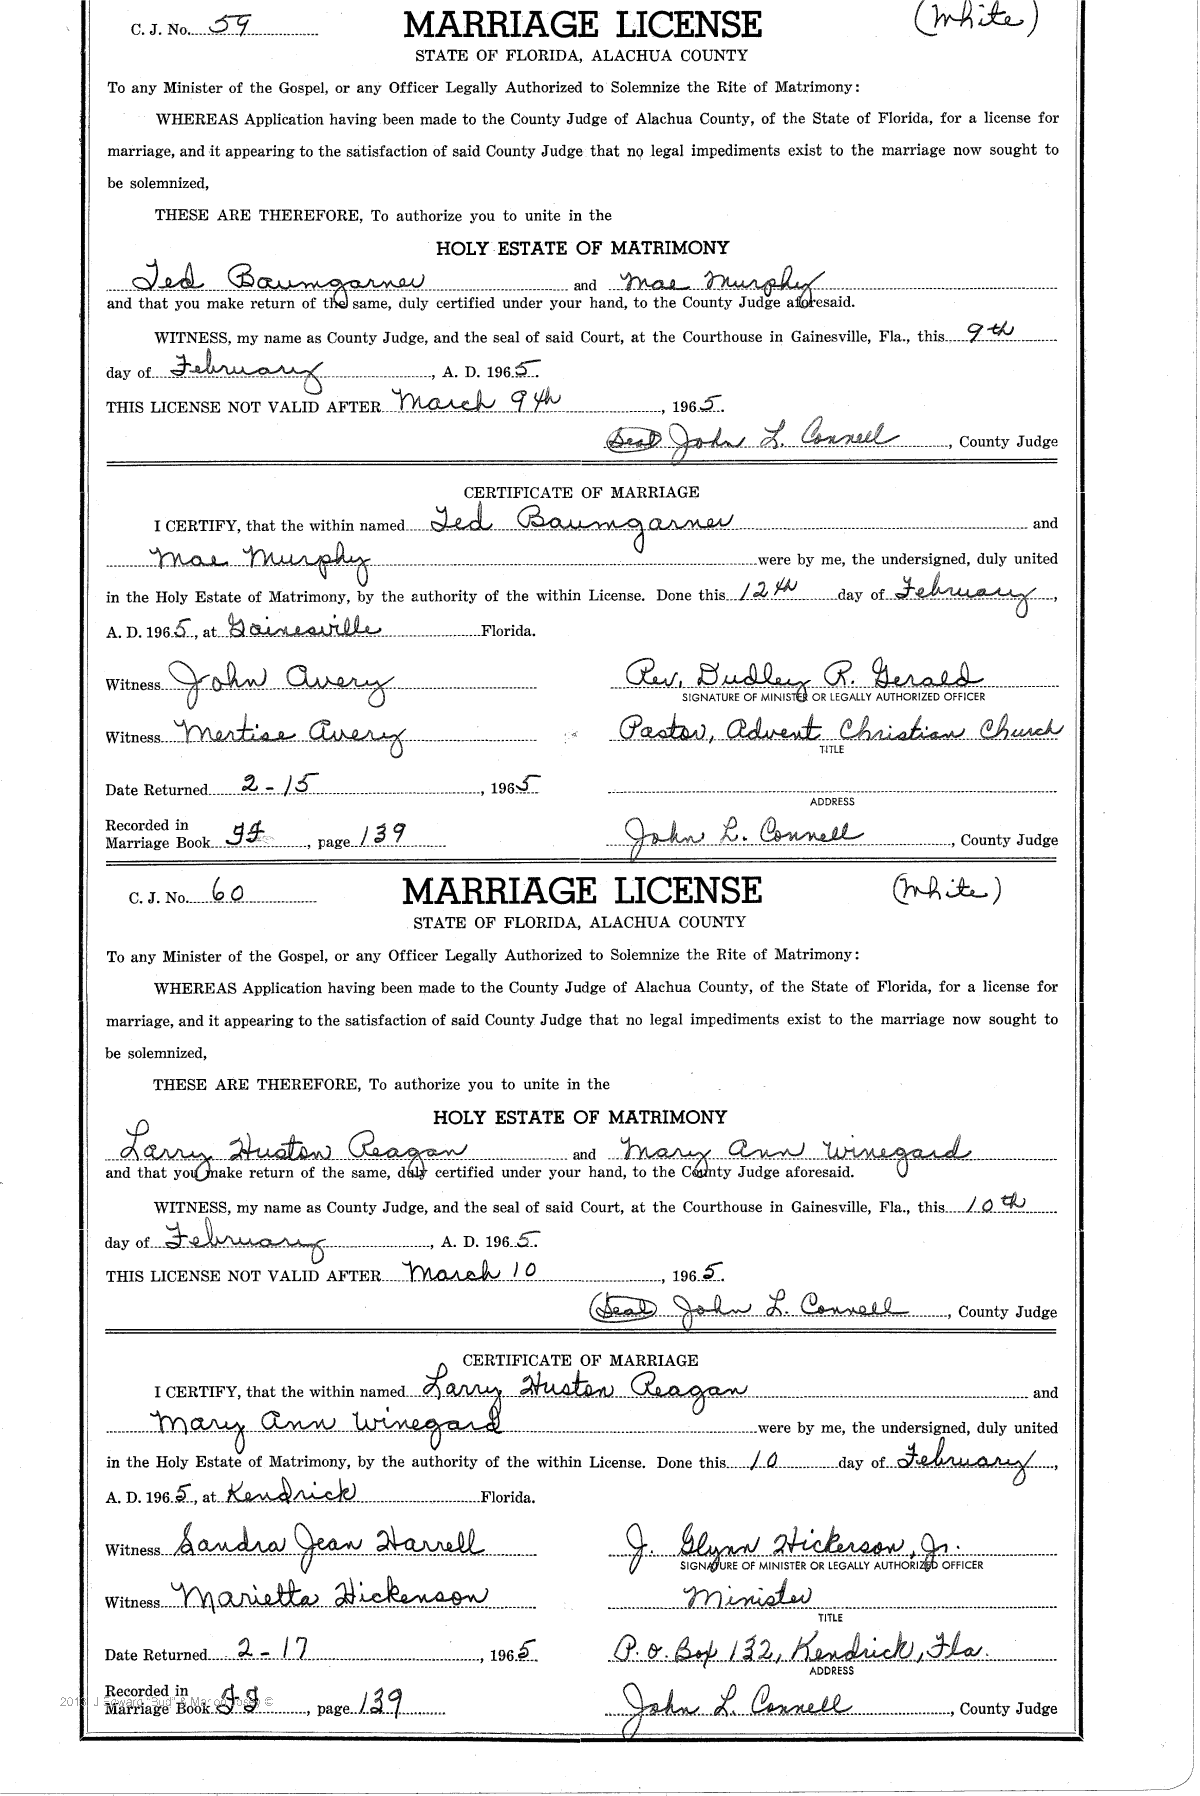 C. J. No. 59 MARRIAGE LICENSE (White)
STATE OF FLORIDA, ALACHUA COUNTY
To any Minister of the Gospel, or any Officer Legally Authorized to Solemnize the Rite of Matrimony:
WHEREAS Application having been made to the County Judge of Alachua County, of the State of Florida, for a license for
marriage, and it appearing to the satisfaction of said County Judge that no legal impediments exist to the marriage now sought to
be solemnized,
THESE ARE THEREFORE, To authorize you to unite in the
HOLY ESTATE OF MATRIMONY
Ted Baumgarner and Mae Murphy
and that you make return of the same, duly certified under your hand, to the County Judge aforesaid.
WITNESS, my name as County Judge, and the seal of said Court, at the Courthouse in Gainesville, Fla., this 9th
day of February, A. D. 1965.
THIS LICENSE NOT VALID AFTER March 9th, 1965.
(Seal) John L. Connell, County Judge
CERTIFICATE OF MARRIAGE
I CERTIFY, that the within named Ted Baumgarner and
Mae Murphy were by me, the undersigned, duly united
in the Holy Estate of Matrimony, by the authority of the within License. Done this 12th day of February,
A. D. 1965, at Gainesville Florida.
Witness John Avery Rev. Dudley R. Gerald
SIGNATURE OF MINISTER OR LEGALLY AUTHORIZED OFFICER
Witness Mertise Avery Pastor, Advent Christian Church
TITLE
Date Returned 2-15, 1965
ADDRESS
Recorded in
Marriage Book, page 139 John L. Connell, County Judge
C. J. No. 60 MARRIAGE LICENSE (White)
STATE OF FLORIDA, ALACHUA COUNTY
To any Minister of the Gospel, or any Officer Legally Authorized to Solemnize the Rite of Matrimony:
WHEREAS Application having been made to the County Judge of Alachua County, of the State of Florida, for a license for
marriage, and it appearing to the satisfaction of said County Judge that no legal impediments exist to the marriage now sought to
be solemnized,
THESE ARE THEREFORE, To authorize you to unite in the
HOLY ESTATE OF MATRIMONY
Larry Huston Reagan and Mary Ann Winegard
and that you make return of the same, duly certified under your hand, to the County Judge aforesaid.
WITNESS, my name as County Judge, and the seal of said Court, at the Courthouse in Gainesville, Fla., this 10th
day of February, A. D. 1965.
THIS LICENSE NOT VALID AFTER March 10, 1965.
(Seal) John L. Connell, County Judge
CERTIFICATE OF MARRIAGE
I CERTIFY, that the within named Larry Huston Reagan and
Mary Ann Winegard were by me, the undersigned, duly united
in the Holy Estate of Matrimony, by the authority of the within License. Done this 10 day of February,
A. D. 1965, at Kendrick Florida.
Witness Sandra Jean Harrell J. Glynn Hickerson, Jr.
SIGNATURE OF MINISTER OR LEGALLY AUTHORIZED OFFICER
Witness Marietta Hickenson Minister
TITLE
Date Returned 2-17, 1965 P.O. Box 132, Kendrick, Fla.
ADDRESS
Recorded in
Marriage Book, page 139 John L. Connell, County Judge